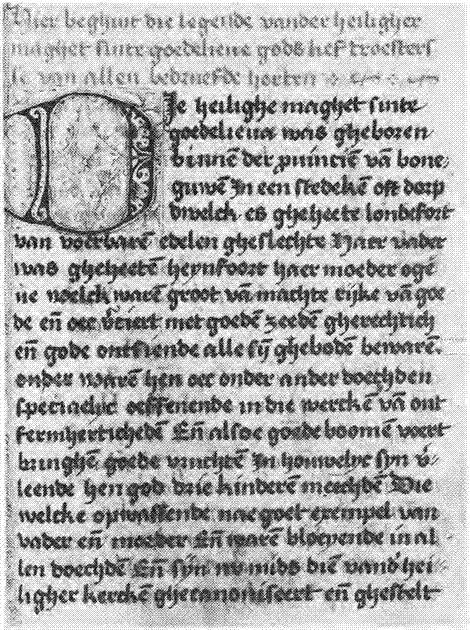 Hier beghint die legende vander heiligher
maghet sinte goedelieue gods lief troesters
se van allen bedruefde herten
Die heilighe maghet sinte
goedelieua was gheboren
binnē der ꝓuinciē vā bone
guwē In een stedekē oft dorp
dwelck es gheheete londefort
van voerbarē edelen gheslechte Haer vader
was gheheetē heynfroort haer moeder ogē
ne welck warē groot vā machte rijke vā goe
de eñ oec v̄ciert met goedē zeedē gherechtich
eñ gode ontsiende alle sij̄ ghebodē bewarē.
ondes warē hen oec onder ander doechden
specialic oeffenende in die werckē vā ont
fermherticheden Eñ alsoe goede boomē voert
bringhē goede vruchtē In houwelyc syn v̓
leende hen god drie kinderē meechdē Die
welcke opwassende nae goet exempel van
vader eñ moeder Eñ warē bloeyende in al
len doechdē Eñ sijn nv mids diē vand̓ hei
ligher kerckē ghecanoniseert eñ ghestelt